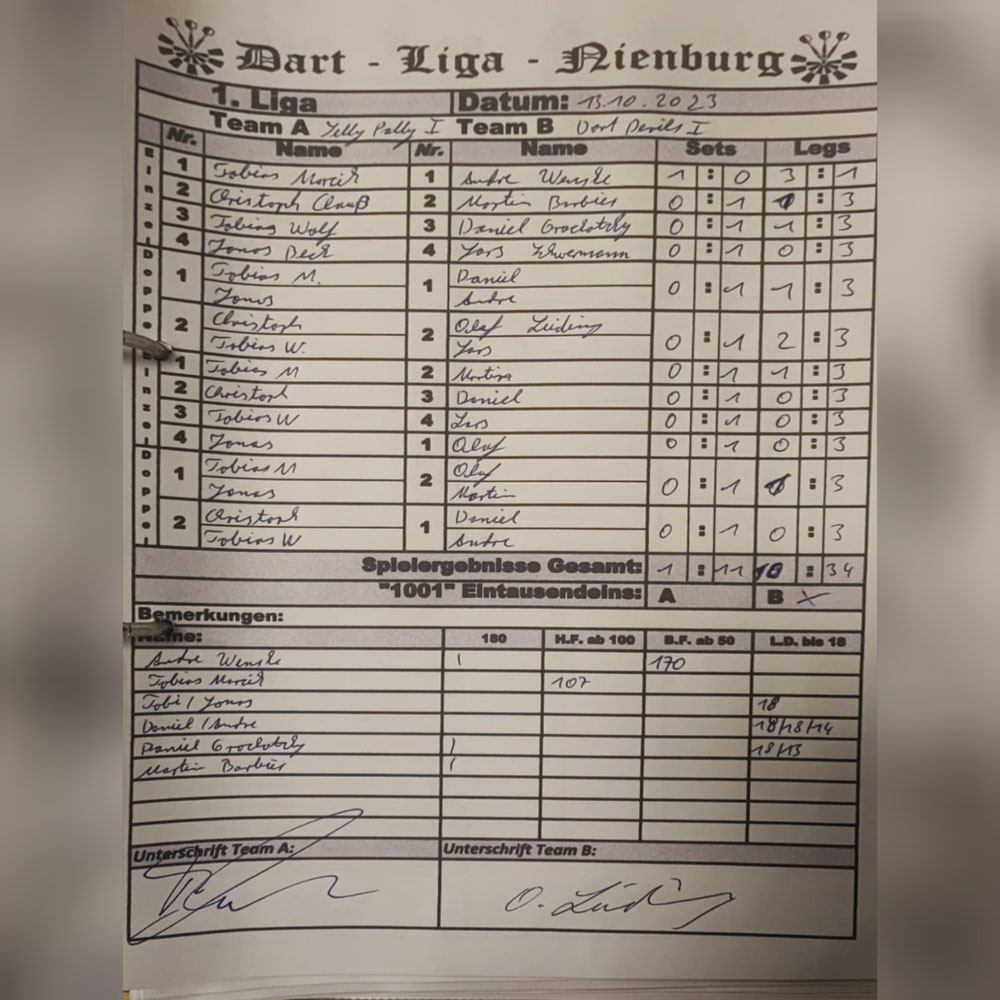 Dart - Liga - Nienburg
1. Liga Datum: 13.10.2023
Team A Jelly Pally I Team B Dart Devils I
Nr. Name Nr. Name Sets Legs
Einzel
1 Tobias 1 Andre Wenske 1 : 0 3 : 1
2 Christoph Clauß 2 Martin Barbier 0 : 1 1 : 3
3 Tobias Wolf 3 Daniel 0 : 1 1 : 3
4 Jonas 4 Lars 0 : 1 0 : 3
Doppel
1 Tobias M. 1 Daniel 0 : 1 1 : 3
Jonas Andre
2 Christoph 2 Olaf Lüding 0 : 1 2 : 3
Tobias W. Lars
Einzel
1 Tobias M 2 Martin 0 : 1 1 : 3
2 Christoph 3 Daniel 0 : 1 0 : 3
3 Tobias W 4 Lars 0 : 1 0 : 3
4 Jonas 1 Olaf 0 : 1 0 : 3
Doppel
1 Tobias M 2 Olaf 0 : 1 1 : 3
Jonas Martin
2 Christoph 1 Daniel 0 : 1 0 : 3
Tobias W Andre
Spielergebnisse Gesamt: 1 : 11 10 : 34
"1001" Eintausendeins: A B X
Bemerkungen:
Name: 180 H.F. ab 100 B.F. ab 50 L.D. bis 18
Andre Wenske 1 170
Tobias 107
Tobi / Jonas 18
Daniel / Andre 18/18/14
Daniel 1 18/13
Martin Barbier 1
Unterschrift Team A: Unterschrift Team B:
O. Lüding